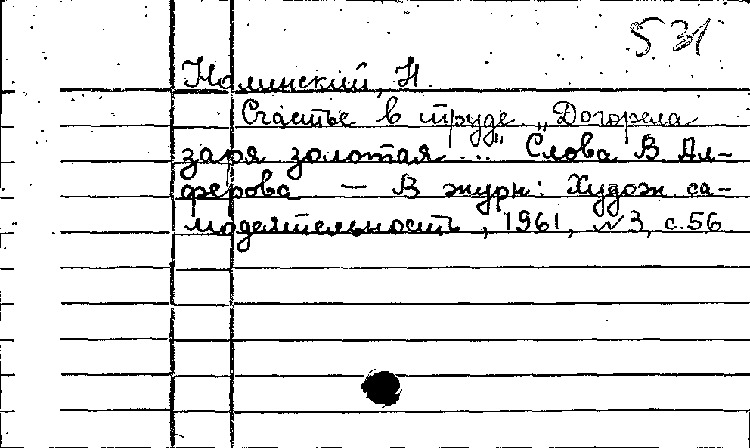 531
Нолинский, Н.
Счастье в труде. "Догорела
заря золотая..." Слова В. Ал-
ферова — В журн: Худож са-
модеятельность, 1961, №3, с.56